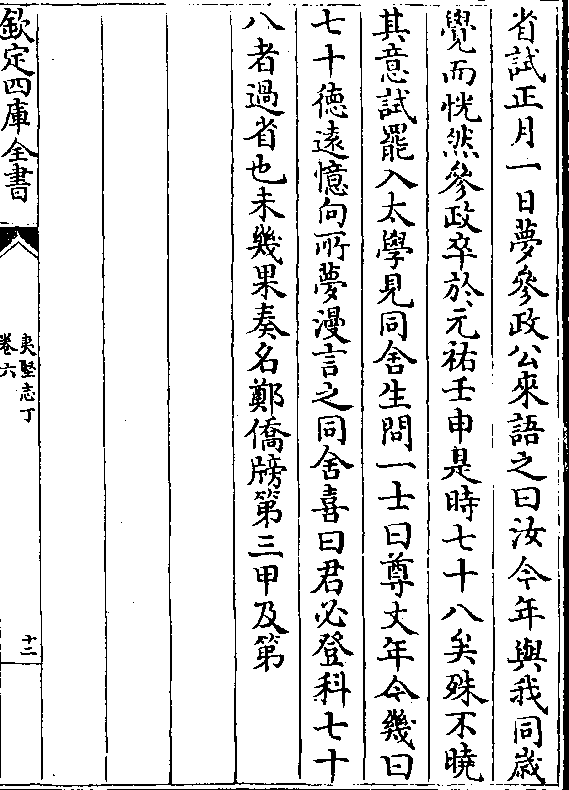 省試正月一日夢參政公來語之曰汝今年與我同歲
覺而恍然參政卒於元祐壬申是時七十八矣殊不曉
其意試罷入太學見同舍生問一士曰尊丈年今幾曰
七十徳遠憶向所夢漫言之同舍喜曰君必登科七十
八者過省也未幾果奏名鄭僑牓第三甲及第
欽定四庫全書
夷堅志丁
卷六
十二